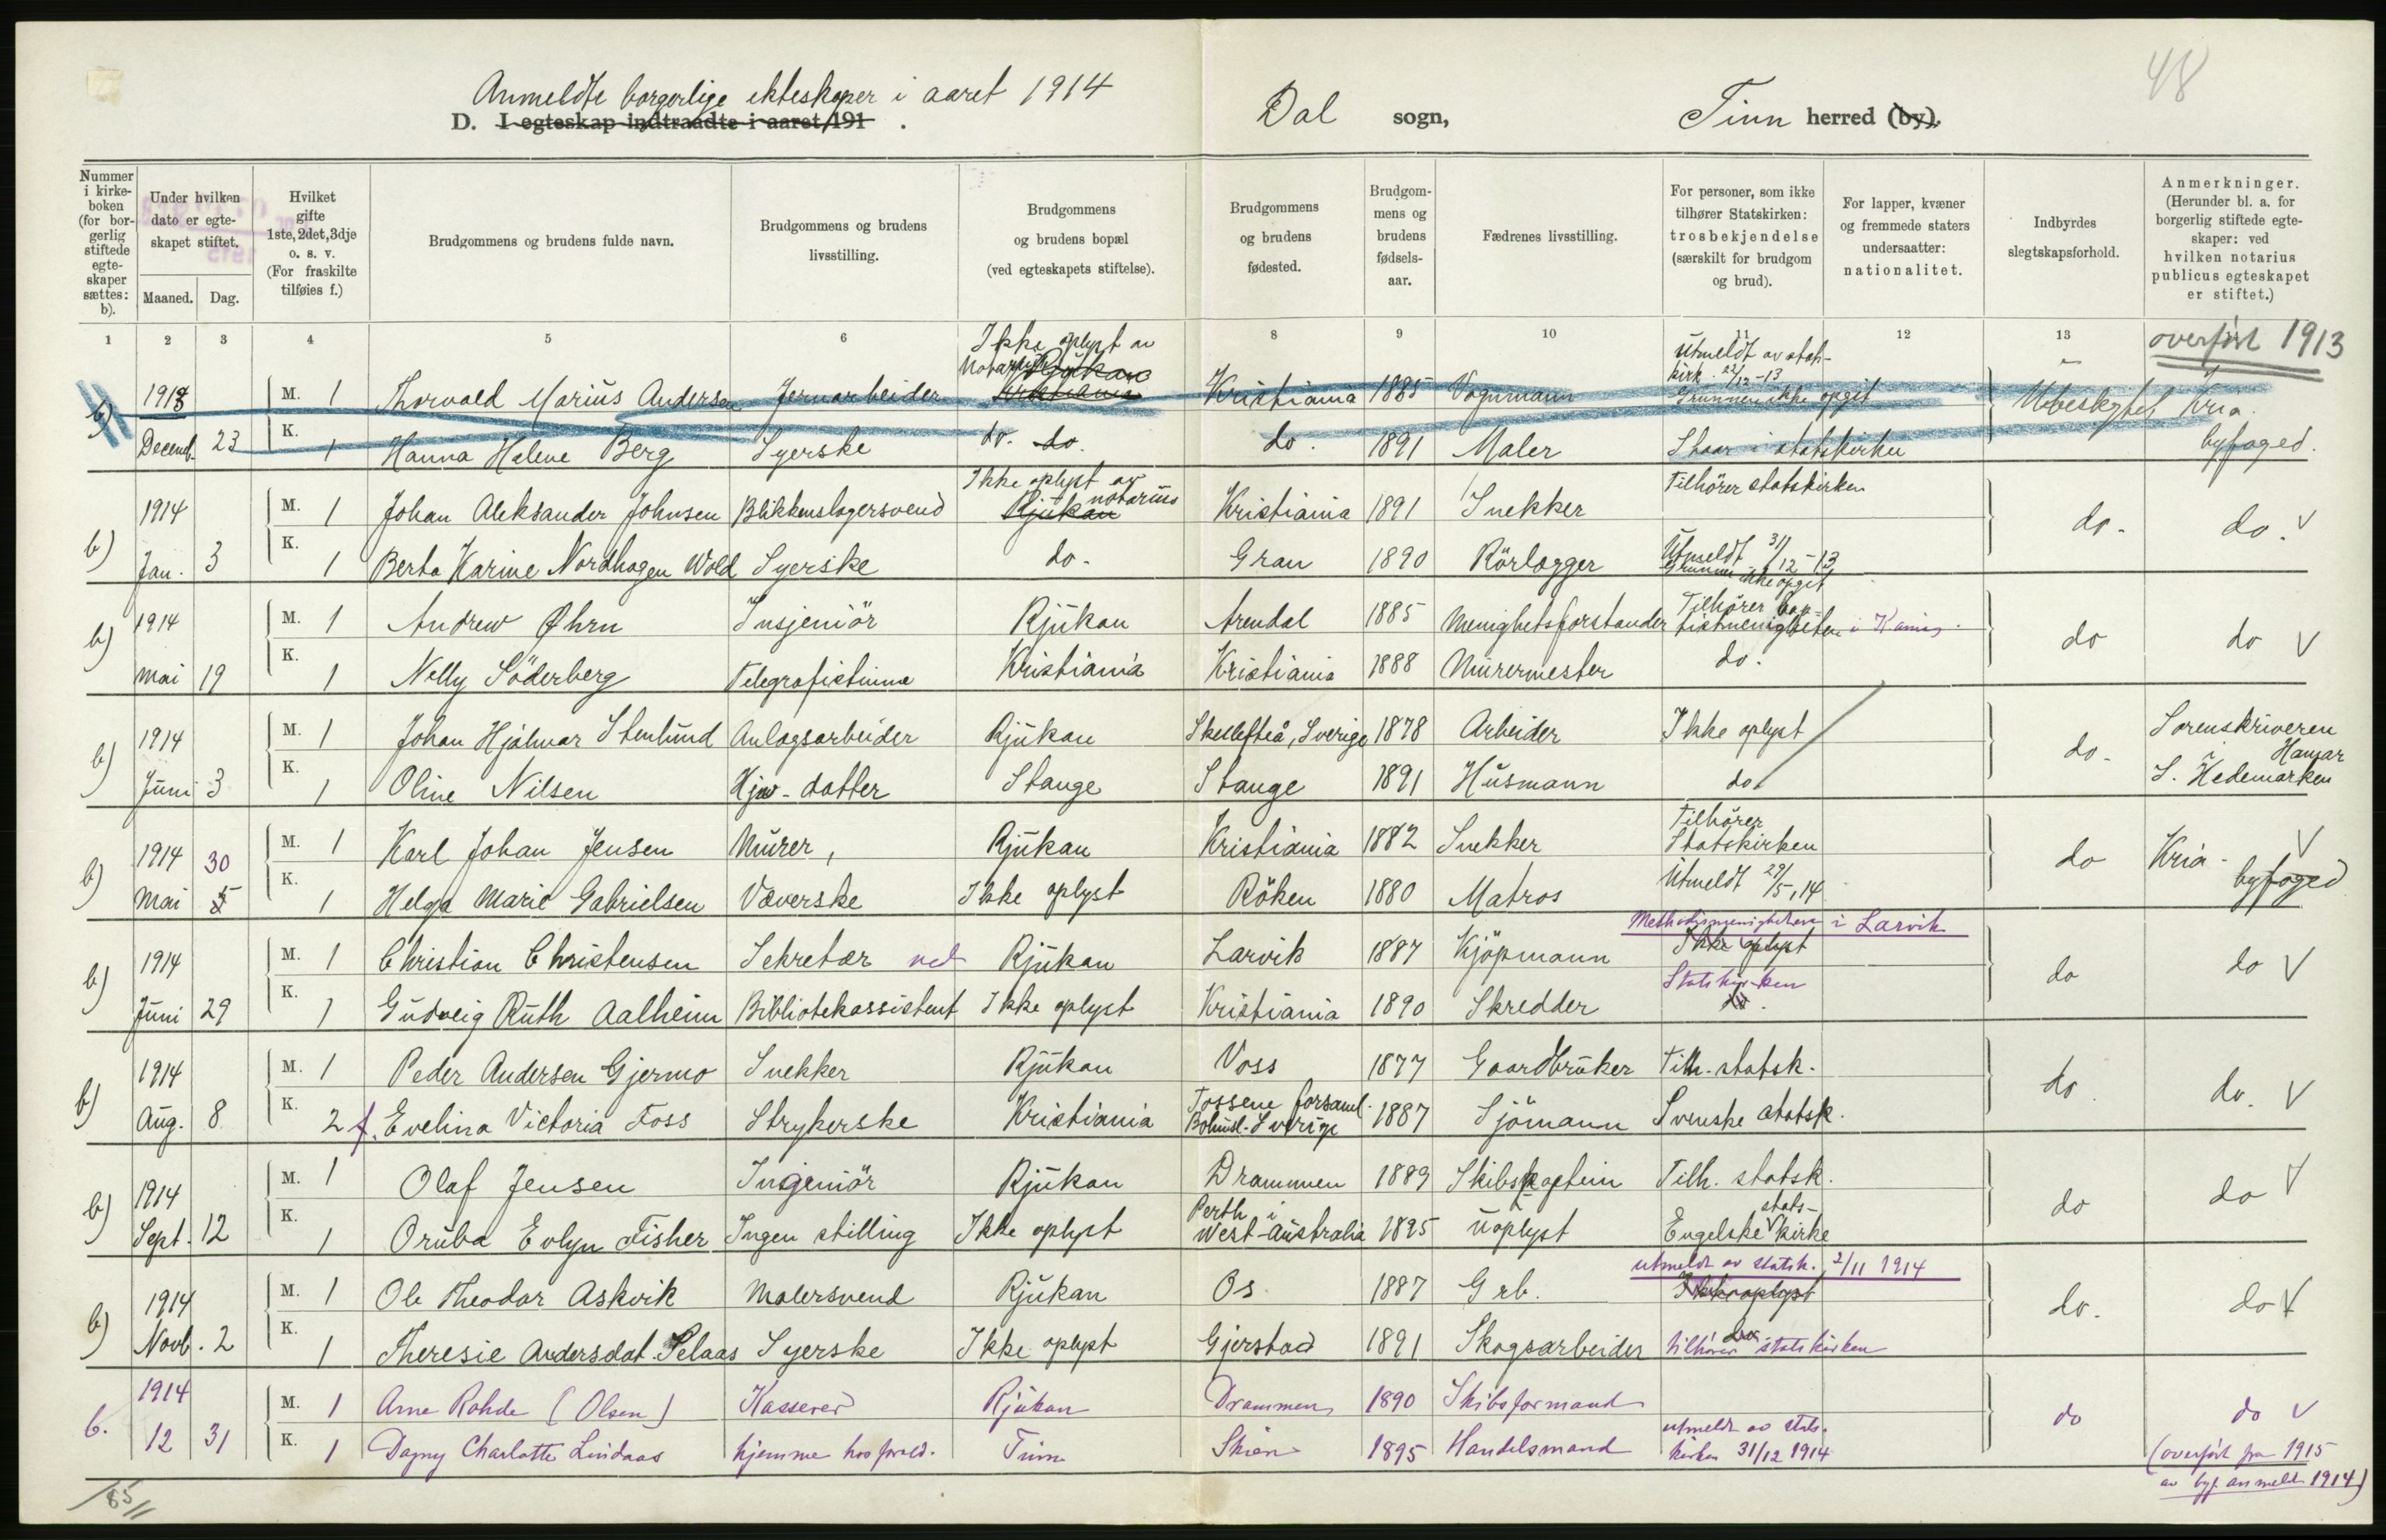 48
Anmeldte borgerlige ekteskaper i aaret 1914
D. I egteskap indtraadte i aaret 191 .
Dal sogn,
Tinn herred (by).
Nummer i kirke-boken (for bor-gerlig stiftede egte-skaper sættes: b).
Under hvilken dato er egte-skapet stiftet.
Maaned. Dag.
Hvilket gifte 1ste, 2det, 3dje o. s. v. (For fraskilte tilføies f.)
Brudgommens og brudens fulde navn.
Brudgommens og brudens livsstilling.
Brudgommens og brudens bopæl (ved egteskapets stiftelse).
Brudgommens og brudens fødested.
Brudgom-mens og brudens fødsels-aar.
Fædrenes livsstilling.
For personer, som ikke tilhører Statskirken: trosbekjendelse (særskilt for brudgom og brud).
For lapper, kvæner og fremmede staters undersaatter: nationalitet.
Indbyrdes slegtskapsforhold.
Anmerkninger. (Herunder bl. a. for borgerlig stiftede egte-skaper: ved hvilken notarius publicus egteskapet er stiftet.)
1 2 3 4 5 6 8 9 10 11 12 13
overført 1913
b) 1913 M. 1 Thorvald Marius Andersen Jernarbeider Ikke oplyst av Notarius Rjukan Kristiania Kristiania 1885 Vognmann Utmeldt av stats-kirk. 22/12-13 Grunnen ikke opgit Ubeslegtet Kria. byfoged.
Decemb. 23 K. 1 Hanna Helene Berg Syerske do. do. do. 1891 Maler Staar i statskirken
b) 1914 M. 1 Johan Aleksander Johnsen Blikkenslagersvend Ikke oplyst av notarius Rjukan Kristiania 1891 Snekker Tilhörer statskirken do. do. V
Jan. 3 K. 1 Berta Karine Nordhagen Wold Syerske do. Gran 1890 Rörlægger Utmeldt 31/12-13 Grunnen ikke opgit
b) 1914 M. 1 Andrew Øhrn Insjeniör Rjukan Arendal 1885 Menighetsforstander Tilhörer bap-tistmenigheten i Kania. do do V
mai 19 K. 1 Nelly Söderberg Telegrafistinne Kristiania Kristiania 1888 Murermester do.
b) 1914 M. 1 Johan Hjalmar Stenlund Anlagsarbeider Rjukan Skellefteå, Sverige 1878 Arbeider Ikke oplyst do. Sorenskriveren i Hamar
Juni 3 K. 1 Oline Nilsen Hjw-datter Stange Stange 1891 Husmann do. S. Hedemarken
b) 1914 30 M. 1 Karl Johan Jensen Murer, Rjukan Kristiania 1882 Snekker Tilhörer Statskirken do Kria- byfoged V
Mai 5 K. 1 Helga Marie Gabrielsen Væverske Ikke oplyst Röken 1880 Matros Utmeldt 29/5, 14
b) 1914 M. 1 Christian Christensen Sekretær ved Rjukan Larvik 1887 Kjöpmann Methodismenigheten i Larvik Ikke oplyst do do V
Juni 29 K. 1 Gudveig Ruth Aalheim Bibliotekassistent Ikke oplyst Kristiania 1890 Skredder Statskirken do.
b) 1914 M. 1 Peder Andersen Gjermo Snekker Rjukan Voss 1877 Gaardbruker Tilh. statsk. do. do. V
Aug. 8 K. 2 f. Evelina Victoria Foss Strykerske Kristiania Tossene forsaml. Bohusl. Sverige 1887 Sjömann Svenske statsk.
b) 1914 M. 1 Olaf Jensen Ingeniör Rjukan Drammen 1889 Skibskaptein Tilh. statsk. do do V
Sept. 12 K. 1 Oruba Evlyn Fisher Ingen stilling Ikke oplyst Perth i West-Australia 1895 Uoplyst Engelske stats-kirke
b) 1914 M. 1 Ole Theodor Askvik Malersvend Rjukan Os 1887 Grb. utmeldt av statsk. 2/11 1914 Ikke oplyst do. do V
Novb. 2 K. 1 Theresie Andersdat. Selaas Syerske Ikke oplyst Gjerstad 1891 Skogsarbeider do. tilhörer statskirken
b. 1914 M. 1 Arne Rohde (Olsen) Kasserer Rjukan Drammen 1890 Skibsformand do do V
12 31 K. 1 Dagny Charlotte Lindaas hjemme hos foræld. Tinn Skien 1895 Handelsmand utmeldt av stats-kirken 31/12 1914 (overført fra 1915 av byf. anmeldt 1914)
85/11